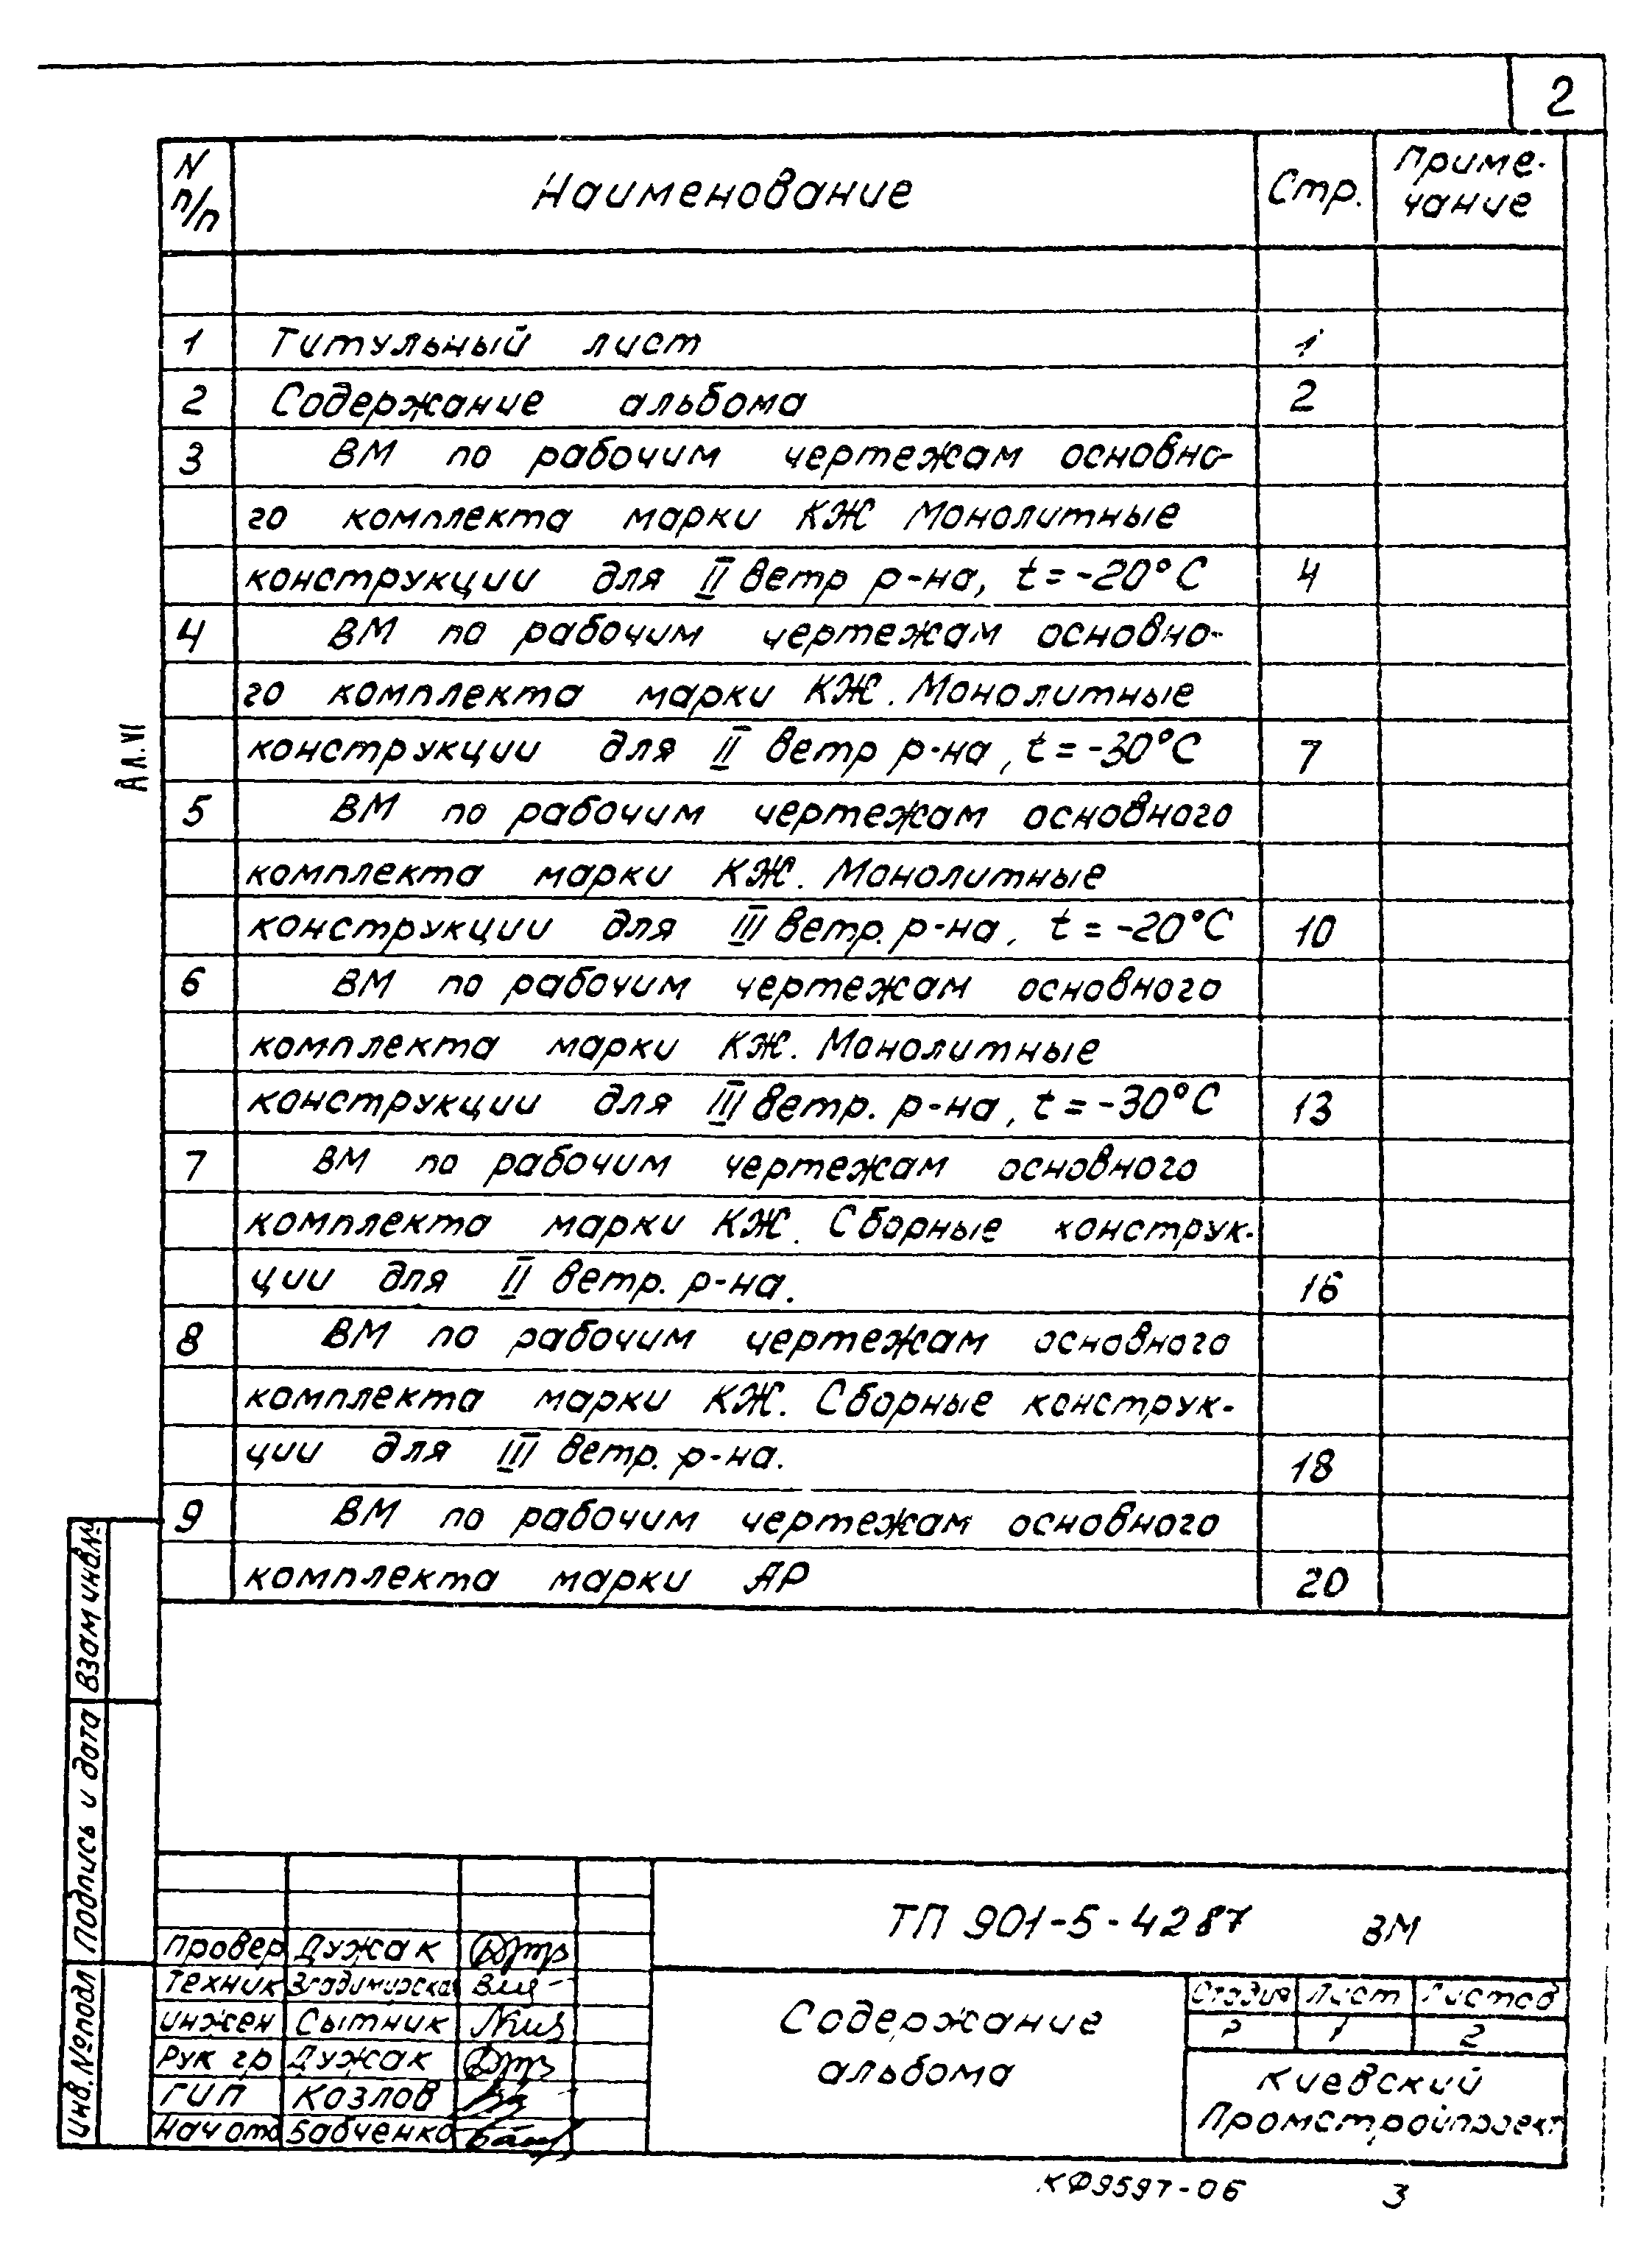 2
N п/п Наименование Стр. Приме-
чание
1 Титульный лист 1
2 Содержание альбома 2
3 ВМ по рабочим чертежам основно-
го комплекта марки КЖ Монолитные
конструкции для II ветр р-на, t=-20°С 4
4 ВМ по рабочим чертежам основно-
го комплекта марки КЖ. Монолитные
конструкции для II ветр р-на, t=-30°С 7
5 ВМ по рабочим чертежам основного
комплекта марки КЖ. Монолитные
конструкции для III ветр. р-на, t=-20°С 10
6 ВМ по рабочим чертежам основного
комплекта марки КЖ. Монолитные
конструкции для III ветр. р-на, t=-30°С 13
7 ВМ по рабочим чертежам основного
комплекта марки КЖ. Сборные конструк-
ции для II ветр. р-на. 16
8 ВМ по рабочим чертежам основного
комплекта марки КЖ. Сборные конструк-
ции для III ветр. р-на. 18
9 ВМ по рабочим чертежам основного
комплекта марки АР 20
Ал. VI
Взам инв.№
Подпись и дата
Инв.№подл
Провер Дужак
Техник
Инжен Сытник
Рук гр Дужак
ГИП Козлов
Нач отд Бабченко
ТП 901-5-4287 ВМ
Содержание
альбома
Стадия Лист Листов
Р 1 2
Киевский
Промстройпроект
КФ9597-06 3